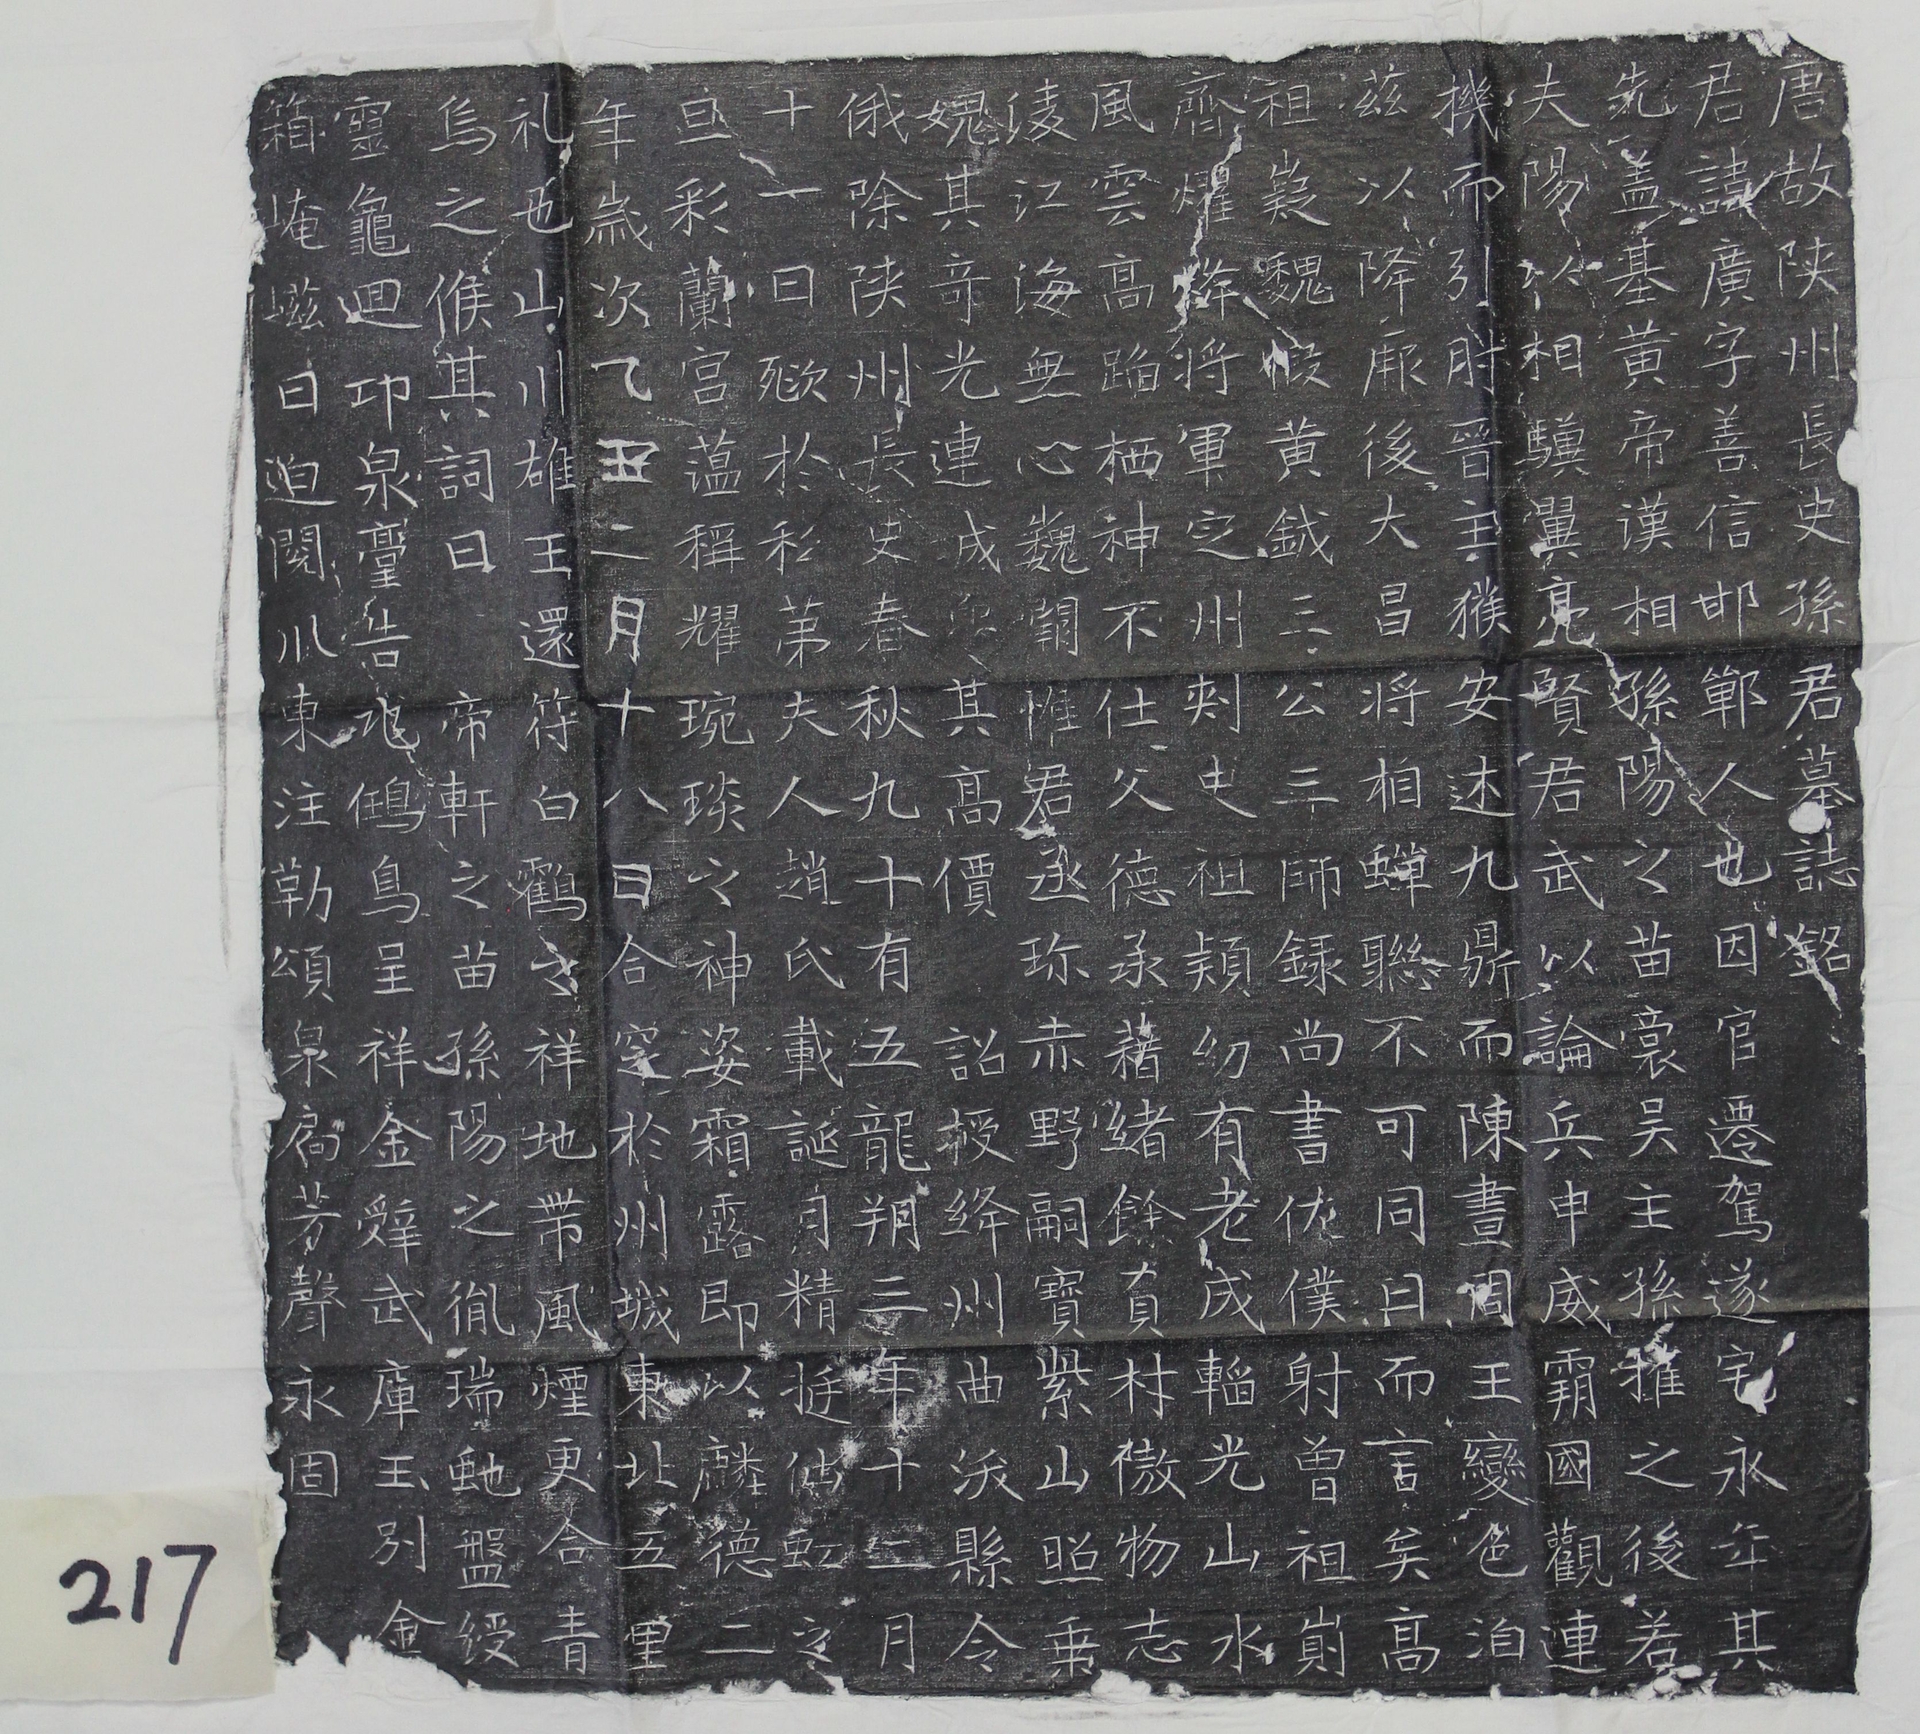 唐故陝州長史孫君墓誌銘
君諱廣字善信邯鄲人也因官遷駕遂宅永年其
先蓋基黃帝漢相孫陽之苗裔吴主孫權之後若
夫陽於相驥翼亮賢君武以論兵申威霸國觀連
機而引肘晉主猴安述九鼎而陳晝周王變色洎
兹以降厥後大昌將相蟬聯不可同日而言矣高
祖嶷魏假黃鉞三公三師錄尚書佐僕射曾祖嵿
齊耀烽將軍定州刾史祖熲幼有老成韜光山水
風雲高蹈栖神不仕父德承藉緒餘貞材儌物志
陵江海無心巍霸惟君丞珎赤野嗣寶紫山照乗
媿其竒光連成 其高價 詔授絳州曲沃縣令
俄除陝州長史春秋九十有五龍朔三年十二月
十一日殁於私第夫人趙氏載誕月精挺 虹之
亘彩蘭宮蕰稱耀琬琰之神姿霜露即以麟德二
年歲次乙丑二月十八日合窆於州城東北五里
礼也山川雄王還符白鸖之祥地帶風煙更合青
烏之候其詞曰 帝軒之苗孫陽之胤瑞虵盤綬
靈龜迴印泉臺告兆鴝鳥呈祥金辤武庫玉別金
箱崦嵫日迫閱川東注勒頌泉扃芳聲永固
217